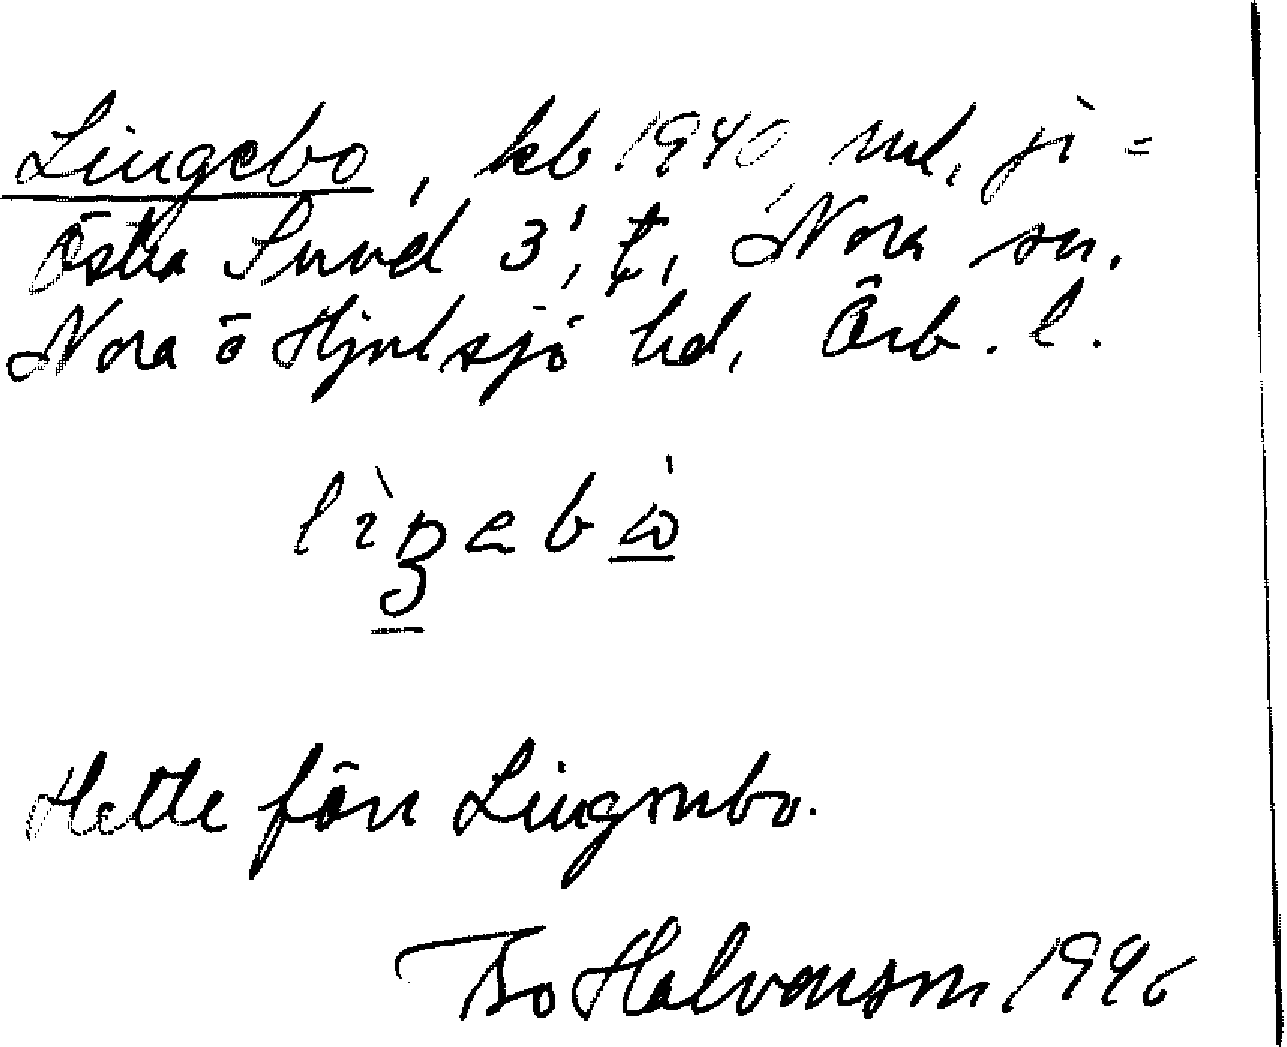 Lingebo, kb 1940 ml, ji =
Östra Sund 3¹, t, Nora sn.
Nora ö Hjulsjö hd, Örb. l.
Hette förr Lingonbo.
Bo Halvarson 1996